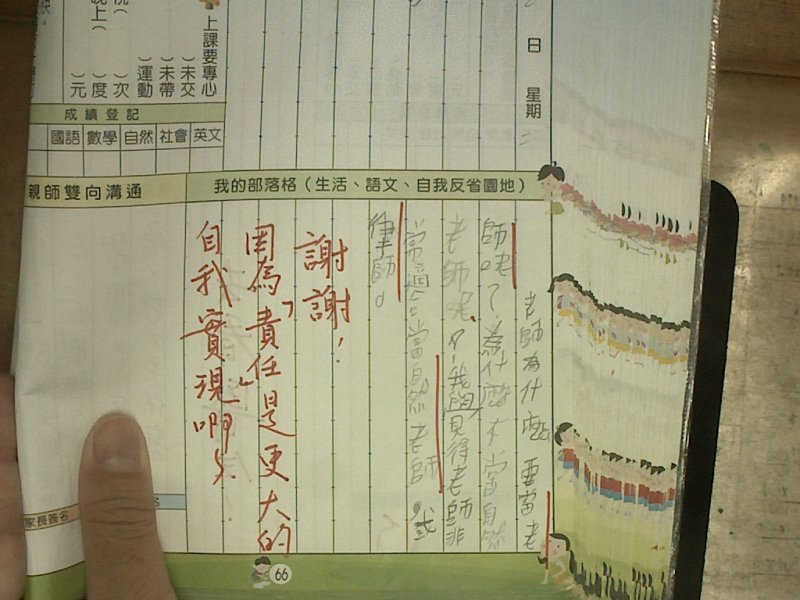 上課要專心
)未交
)未帶
)運動
)次
)度
)元
晚上(
日 星期二
成績登記
國語 數學 自然 社會 英文
親師雙向溝通
我的部落格(生活、語文、自我反省園地)
老師為什麼要當老
師呢?為什麼不當自然
老師呢?我覺得老師非
常適合當自然老師或
律師。
謝謝!
因為「責任」是更大的
自我實現啊!
家長簽名
66